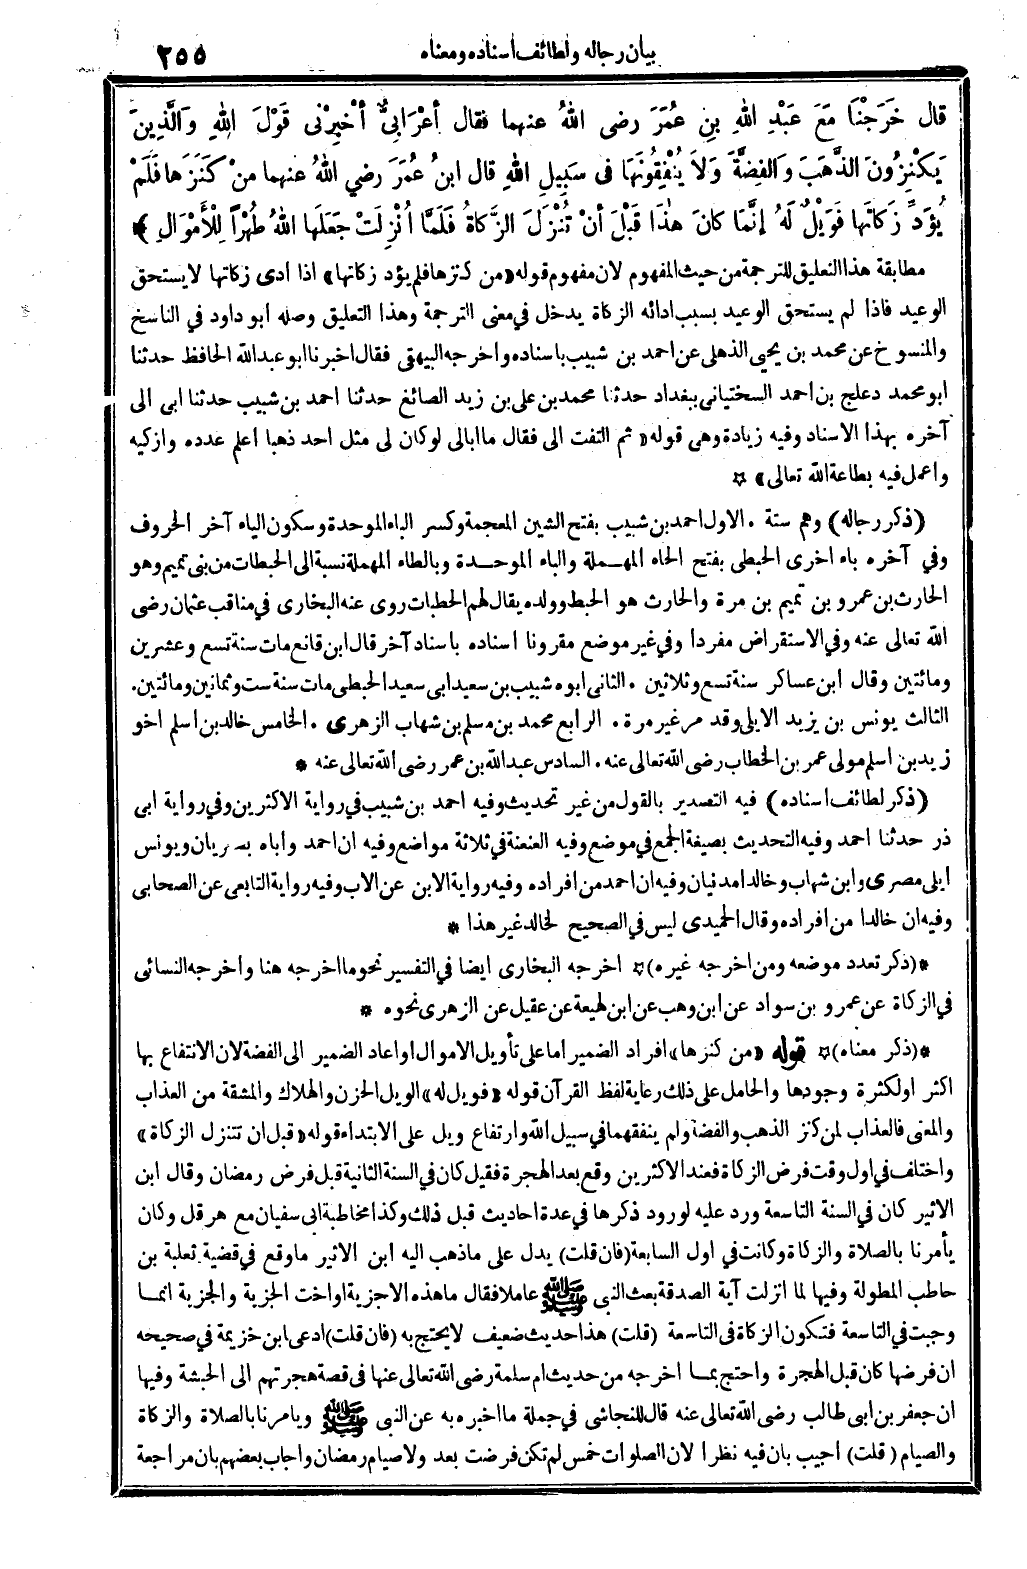 بيان رجاله ولطائف اسناده ومعناه ٢٥٥
قال خَرَجْنَا مَعَ عَبْدِ اللهِ بنِ عُمَرَ رضى اللهُ عنهما فقال أعْرَابِيٌّ أخْبِرْنى قَوْلَ اللهِ وَالَّذِينَ
يَكْنِزُونَ الذَّهَبَ وَالفِضَّةَ وَلاَ يُنْفِقُونَهَا فى سَبِيلِ اللهِ قال ابنُ عُمَرَ رضي اللهُ عنهما مَنْ كَنَزَها فَلَمْ
يُؤَدِّ زَكاتَها فَوَيْلٌ لَهُ إنَّمَا كانَ هٰذَا قَبْلَ أنْ تُنْزَلَ الزَّكاةُ فَلَمَّا أُنْزِلَتْ جَعَلَها اللهُ طُهْرًا لِلْأَمْوَالِ ﴾
مطابقة هذا التعليق للترجمة من حيث المفهوم لان مفهوم قوله «من كنزها فلم يؤد زكاتها» اذا ادى زكاتها لا يستحق
الوعيد فاذا لم يستحق الوعيد بسبب ادائه الزكاة يدخل في معنى الترجمة وهذا التعليق وصله ابو داود في الناسخ
والمنسوخ عن محمد بن يحيى الذهلى عن احمد بن شبيب باسناده واخرجه البيهقى فقال اخبرنا ابو عبدالله الحافظ حدثنا
ابو محمد دعلج بن احمد السختيانى ببغداد حدثنا محمد بن على بن زيد الصائغ حدثنا احمد بن شبيب حدثنا ابى الى
آخره بهذا الاسناد وفيه زيادة وهى قوله «ثم التفت الى فقال ما ابالى لو كان لى مثل احد ذهبا اعلم عدده وازكيه
واعمل فيه بطاعة الله تعالى» ☆
(ذكر رجاله) وهم ستة . الاول احمد بن شبيب بفتح الشين المعجمة وكسر الباء الموحدة وسكون الياء آخر الحروف
وفي آخره باء اخرى الحبطى بفتح الحاء المهملة والباء الموحدة وبالطاء المهملة نسبة الى الحبطات من بنى تميم وهو
الحارث بن عمرو بن تميم بن مرة والحارث هو الحبط وولده يقال لهم الحطبات روى عنه البخارى في مناقب عثمان رضى
الله تعالى عنه وفي الاستقراض مفردا وفي غير موضع مقرونا اسناده باسناد آخر قال ابن قانع مات سنة تسع وعشرين
ومائتين وقال ابن عساكر سنة تسع وثلاثين . الثانى ابوه شبيب بن سعيد ابى سعيد الحبطى مات سنة ست وثمانين ومائتين .
الثالث يونس بن يزيد الايلى وقد مر غير مرة . الرابع محمد بن مسلم بن شهاب الزهرى . الخامس خالد بن اسلم اخو
زيد بن اسلم مولى عمر بن الخطاب رضى الله تعالى عنه . السادس عبدالله بن عمر رضى الله تعالى عنه *
(ذكر لطائف اسناده) فيه التصدير بالقول من غير تحديث وفيه احمد بن شبيب في رواية الاكثرين وفي رواية ابى
ذر حدثنا احمد وفيه التحديث بصيغة الجمع في موضع وفيه العنعنة في ثلاثة مواضع وفيه ان احمد واباه بصريان ويونس
ايلى مصرى وابن شهاب وخالد مدنيان وفيه ان احمد من افراده وفيه رواية الابن عن الاب وفيه رواية التابعى عن الصحابى
وفيه ان خالدا من افراده وقال الحميدى ليس في الصحيح لخالد غير هذا *
*(ذكر تعدد موضعه ومن اخرجه غيره)☆ اخرجه البخارى ايضا في التفسير نحو ما اخرجه هنا واخرجه النسائى
في الزكاة عن عمرو بن سواد عن ابن وهب عن ابن لهيعة عن عقيل عن الزهرى نحوه *
*(ذكر معناه)☆ قوله «من كنزها» افراد الضمير اما على تأويل الاموال او اعاد الضمير الى الفضة لان الانتفاع بها
اكثر او لكثرة وجودها والحامل على ذلك رعاية لفظ القرآن قوله «فويل له» الويل الحزن والهلاك والمشقة من العذاب
والمعنى فالعذاب لمن كنز الذهب والفضة ولم ينفقهما في سبيل الله وارتفاع ويل على الابتداء قوله «قبل ان تنزل الزكاة»
واختلف في اول وقت فرض الزكاة فعند الاكثرين وقع بعد الهجرة فقيل كان في السنة الثانية قبل فرض رمضان وقال ابن
الاثير كان في السنة التاسعة ورد عليه لورود ذكرها في عدة احاديث قبل ذلك وكذا مخاطبة ابى سفيان مع هرقل وكان
يأمرنا بالصلاة والزكاة وكانت في اول السابعة (فان قلت) يدل على ما ذهب اليه ابن الاثير ما وقع في قضية ثعلبة بن
حاطب المطولة وفيها لما انزلت آية الصدقة بعث النبى ﷺ عاملا فقال ما هذه الا جزية او اخت الجزية والجزية انما
وجبت في التاسعة فتكون الزكاة فى التاسعة (قلت) هذا حديث ضعيف لا يحتج به (فان قلت) ادعى ابن خزيمة في صحيحه
ان فرضها كان قبل الهجرة واحتج بما اخرجه من حديث ام سلمة رضى الله تعالى عنها فى قصة هجرتهم الى الحبشة وفيها
ان جعفر بن ابى طالب رضى الله تعالى عنه قال للنجاشى في جملة ما اخبره به عن النبى ﷺ ويامرنا بالصلاة والزكاة
والصيام (قلت) اجيب بان فيه نظرا لان الصلوات خمس لم تكن فرضت بعد ولا صيام رمضان واجاب بعضهم بان مراجعة